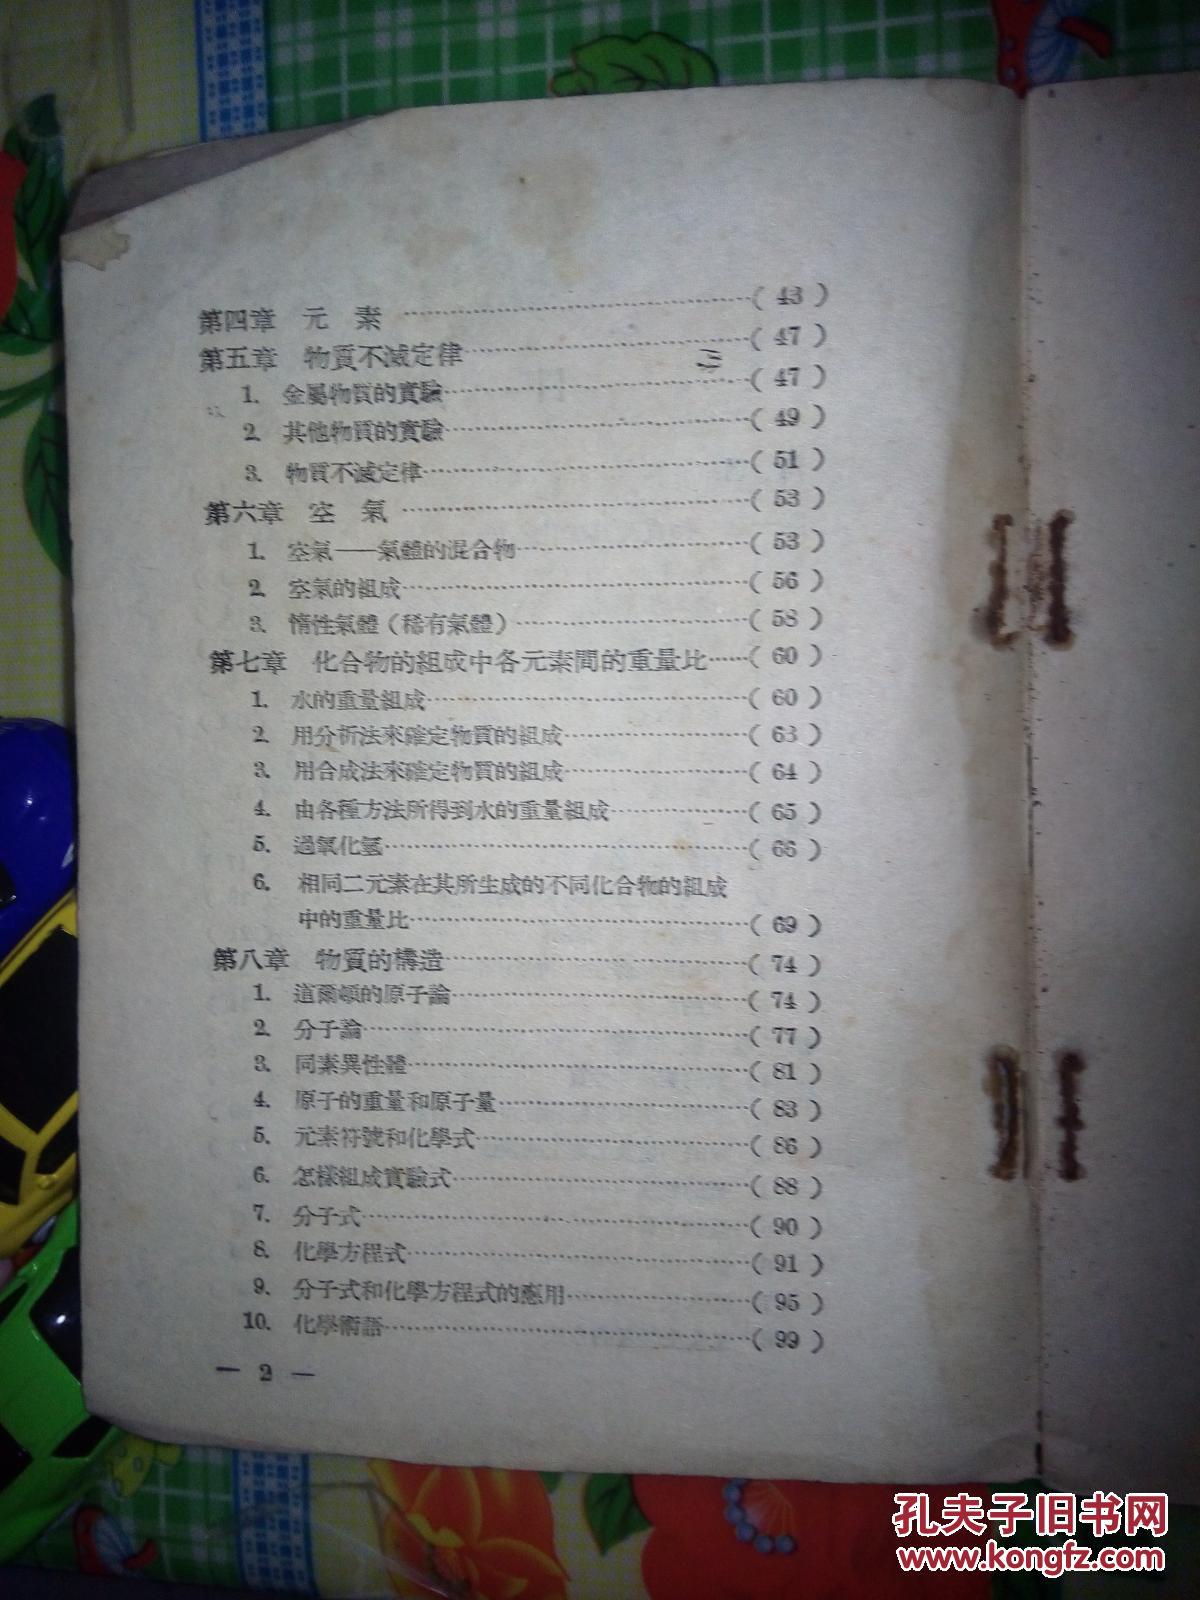 第四章 元 素 ………………(43)
第五章 物質不滅定律………………(47)
1. 金屬物質的實驗………………(47)
2. 其他物質的實驗………………(49)
3. 物質不滅定律………………(51)
第六章 空 氣 ………………(53)
1. 空氣——氣體的混合物………………(53)
2. 空氣的組成………………(56)
3. 惰性氣體(稀有氣體)………………(58)
第七章 化合物的組成中各元素間的重量比……(60)
1. 水的重量組成………………(60)
2. 用分析法來確定物質的組成………………(63)
3. 用合成法來確定物質的組成………………(64)
4. 由各種方法所得到水的重量組成………………(65)
5. 過氧化氫………………(66)
6. 相同二元素在其所生成的不同化合物的組成
中的重量比………………(69)
第八章 物質的構造………………(74)
1. 道爾頓的原子論………………(74)
2. 分子論………………(77)
3. 同素異性體………………(81)
4. 原子的重量和原子量………………(83)
5. 元素符號和化學式………………(86)
6. 怎樣組成實驗式………………(88)
7. 分子式………………(90)
8. 化學方程式………………(91)
9. 分子式和化學方程式的應用………………(95)
10. 化學術語………………(99)
— 2 —
孔夫子旧书网
www.kongfz.com